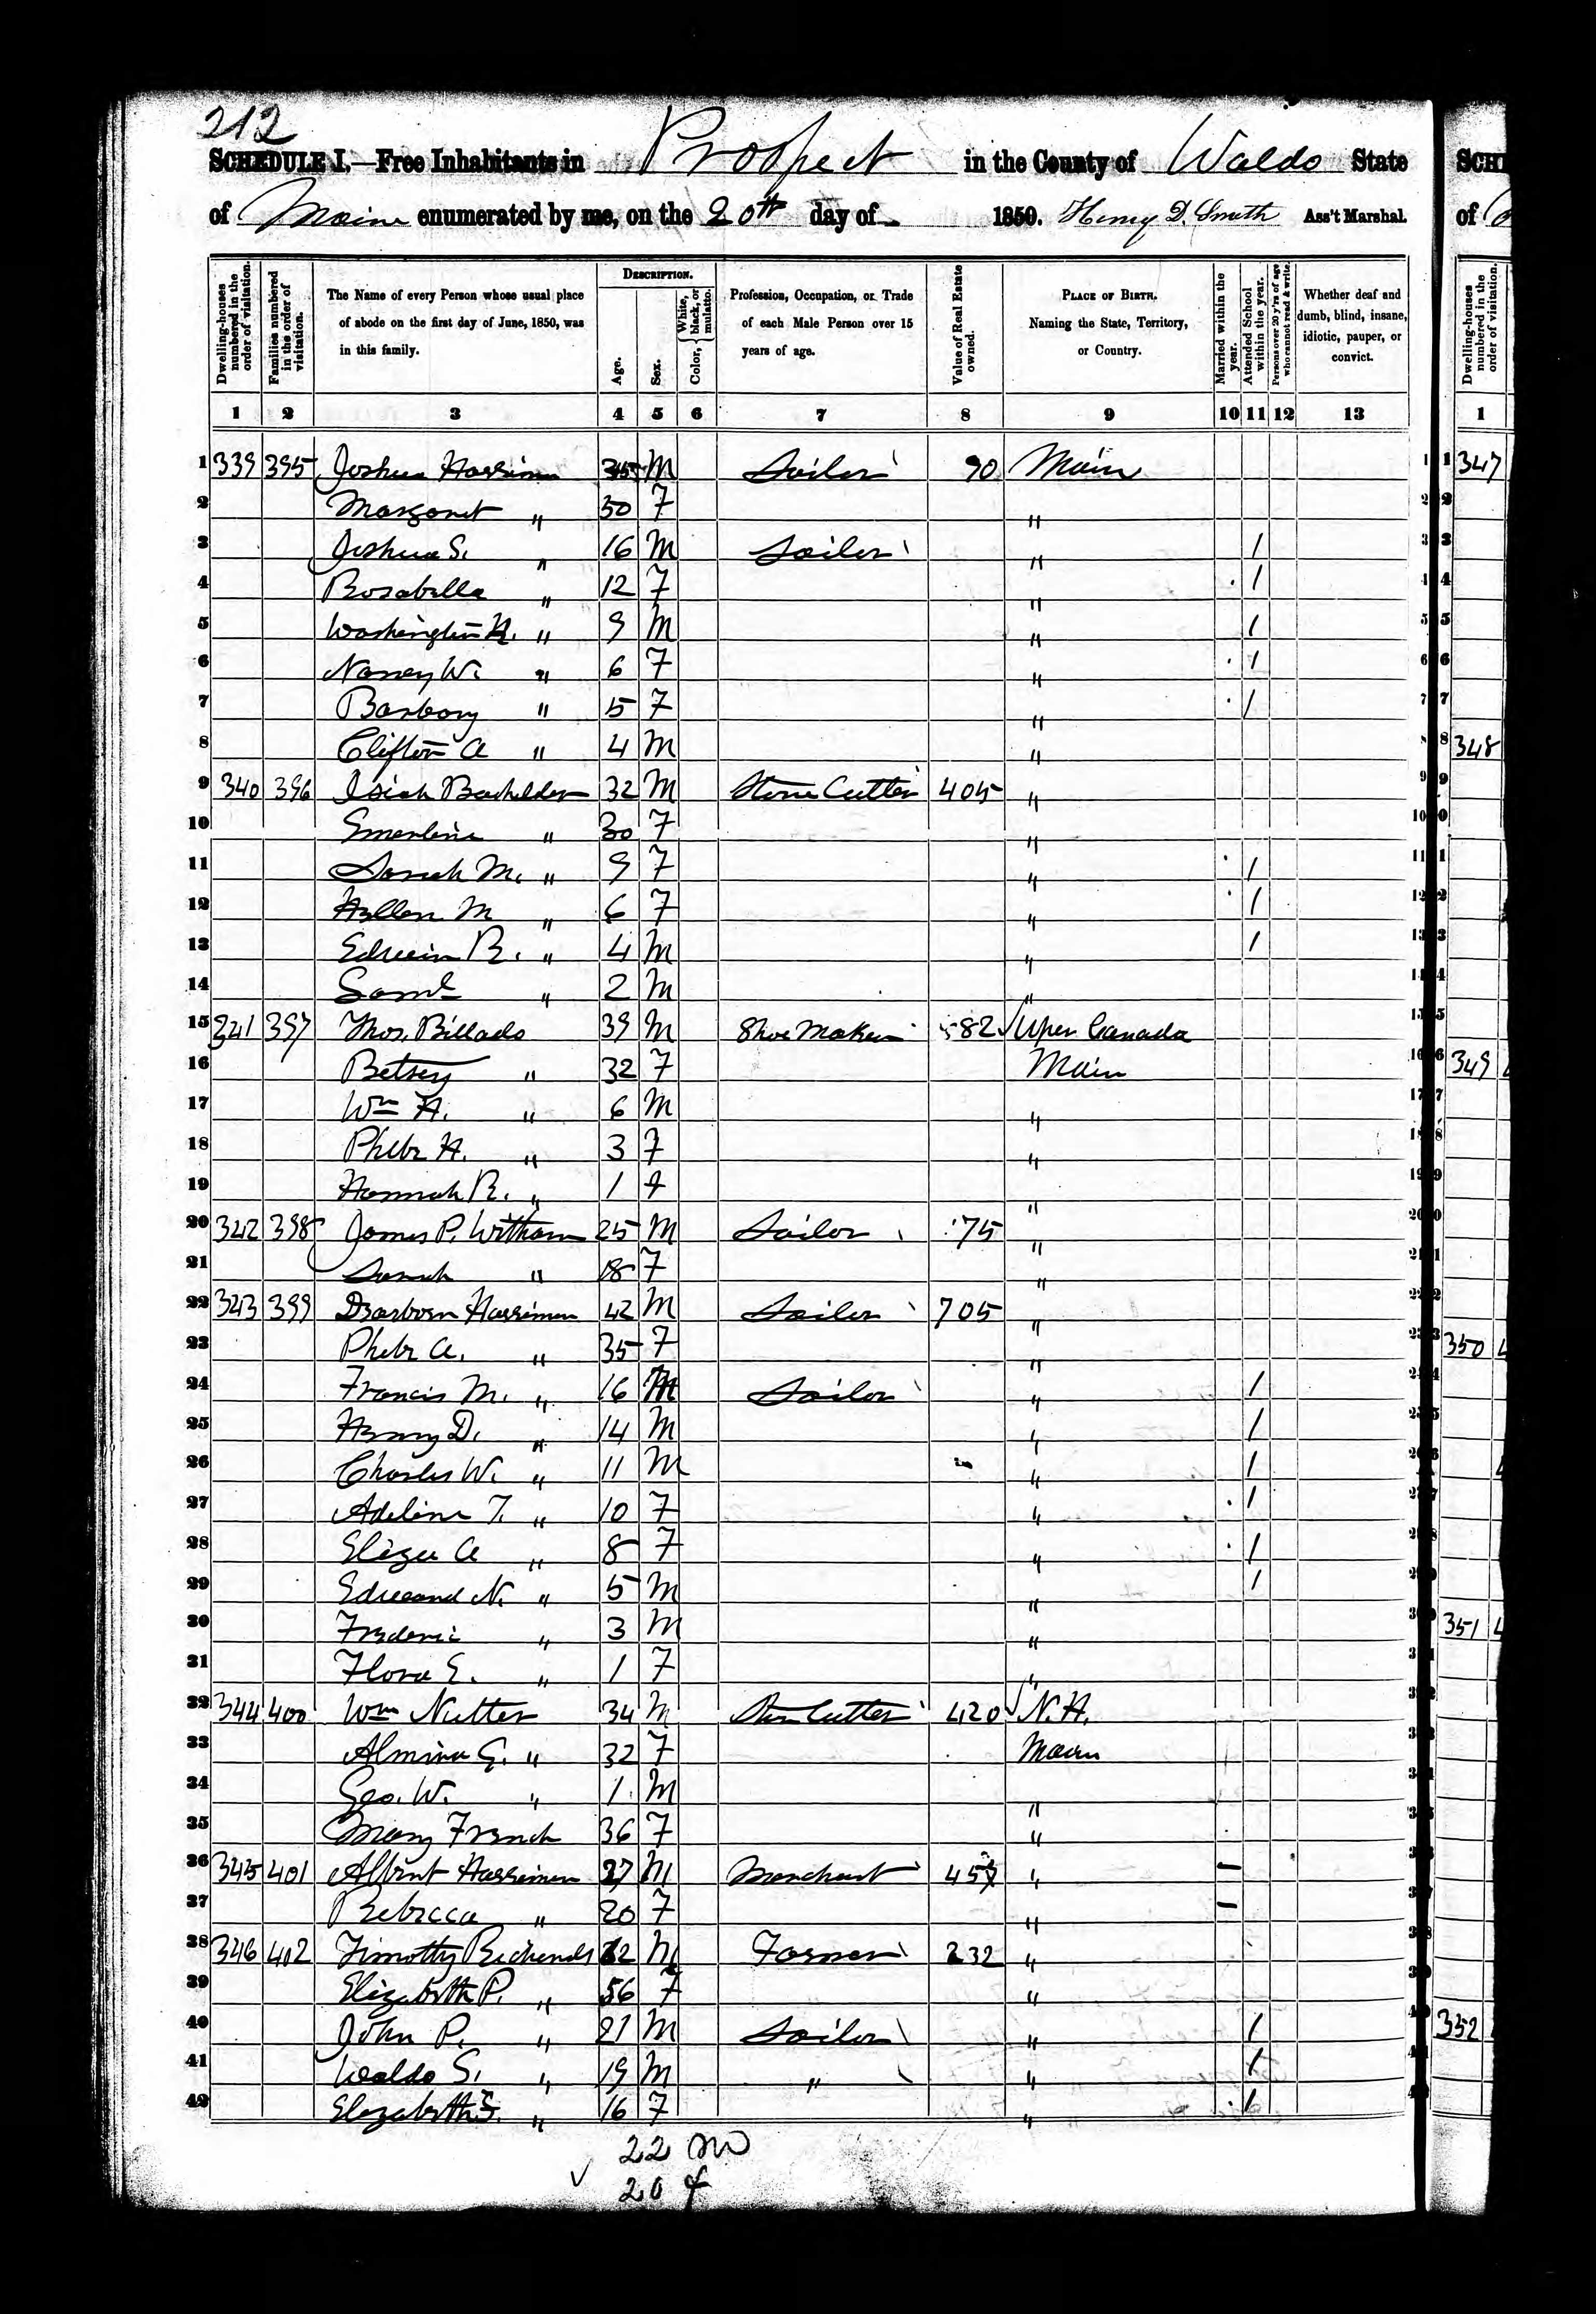 212
SCHEDULE I.—Free Inhabitants in Prospect in the County of Waldo State
of Maine enumerated by me, on the 20th day of 1850. Henry D. Smith Ass't Marshal.
Dwelling-houses numbered in the order of visitation.
Families numbered in the order of visitation.
The Name of every Person whose usual place of abode on the first day of June, 1850, was in this family.
DESCRIPTION.
Age.
Sex.
Color, White, black, or mulatto.
Profession, Occupation, or Trade of each Male Person over 15 years of age.
Value of Real Estate owned.
PLACE OF BIRTH.
Naming the State, Territory, or Country.
Married within the year.
Attended School within the year.
Persons over 20 y'rs of age who cannot read & write.
Whether deaf and dumb, blind, insane, idiotic, pauper, or convict.
1 2 3 4 5 6 7 8 9 10 11 12 13
1 339 395 Joshua Harriman M Sailor 90 Main
2 Margaret " 50 F "
3 Joshua S. " 16 M Sailor " /
4 Rosabella " 12 F " /
5 Washington H. " 9 M " /
6 Nancy W. " 6 F " /
7 Barbary " 5 F " /
8 Clifton A " 4 M "
9 340 396 Isiah Bachelder 32 M Stone Cutter 405 "
10 Emerline " 30 F "
11 Sarah M. " 9 F " /
12 Hellen M " 6 F " /
13 Edwin R. " 4 M " /
14 Saml " 2 M "
15 341 397 Thos. Billads 39 M Shoe Maker 582 Uper Canada
16 Betsey " 32 F Main
17 Wm H. " 6 M "
18 Phebe H. " 3 F "
19 Hannah R. " 1 F "
20 342 398 James P. Witham 25 M Sailor 75 "
21 Sarah " 18 F "
22 343 399 Dearborn Harriman 42 M Sailor 705 "
23 Phebe A. " 35 F "
24 Francis M. " 16 M Sailor " /
25 Henry D. " 14 M " /
26 Charles W. " 11 M " /
27 Adeline T. " 10 F " /
28 Eliza A " 8 F " /
29 Edward N. " 5 M " /
30 Frederic " 3 M "
31 Flora E. " 1 F "
32 344 400 Wm Nutter 34 M Stone Cutter 420 N.H.
33 Almira G. " 32 F Main
34 Geo. W. " 1 M "
35 Mary French 36 F "
36 345 401 Albert Harriman 27 M Merchant "
37 Rebecca " 20 F "
38 346 402 Timothy Richends M Farmer 232 "
39 Elizabeth P. " 56 F "
40 John P. " 21 M Sailor " /
41 Waldo S. " 19 M " " /
42 Elizabeth S. " 16 F " /
22 m
20 f
SCHE
of
Dwelling-houses numbered in the order of visitation.
1
347
348
349
350
351
352